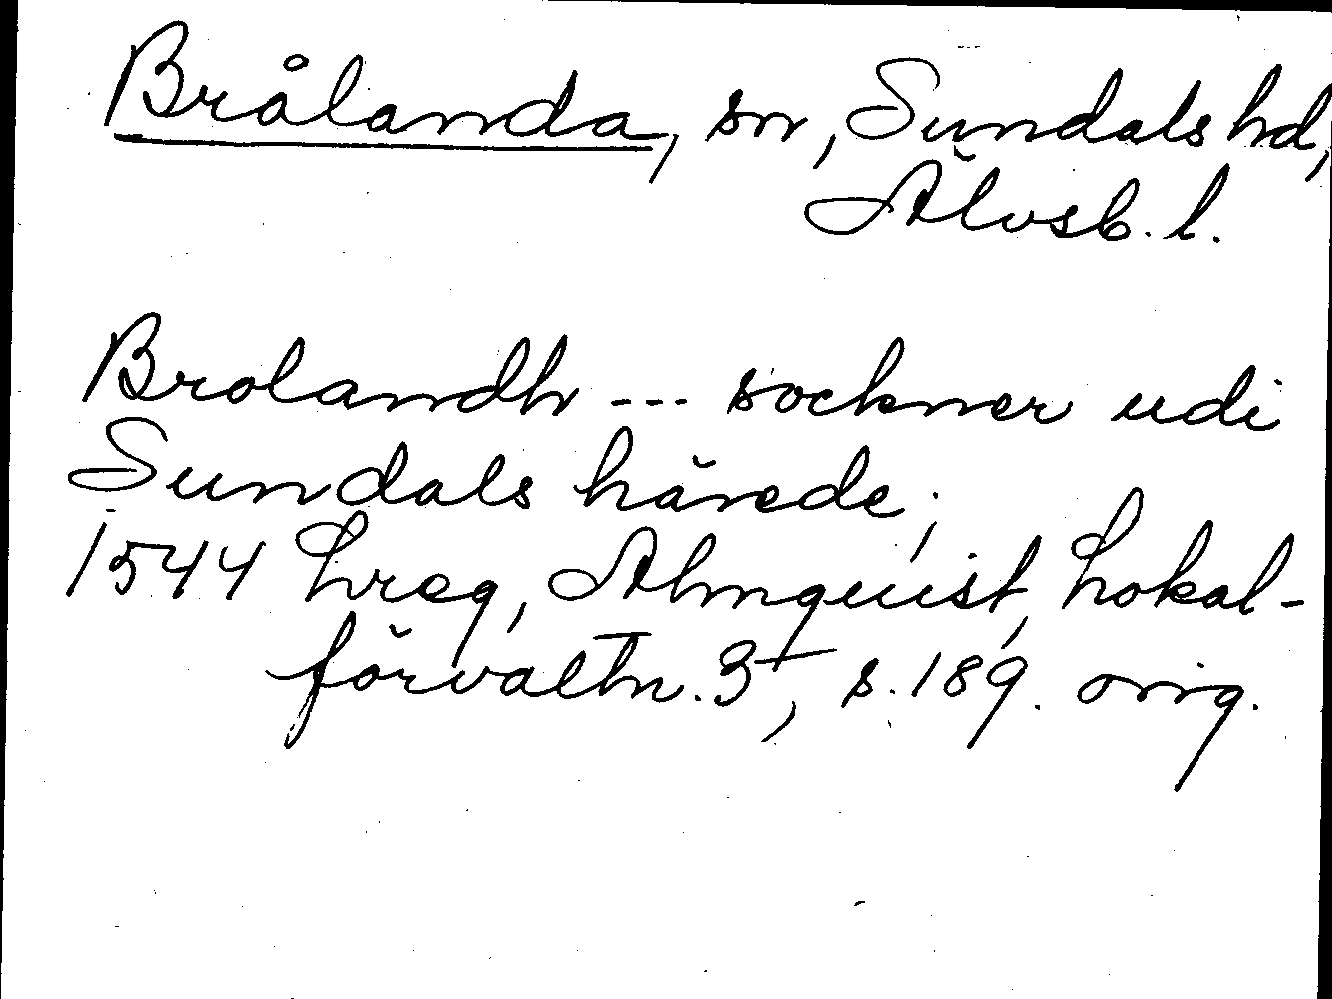 Brålanda, sn, Sundals hd,
Älvsb. l.
Brolandh --- sockner udi
Sundals härede,
1544 Lreg, Almquist, Lokal-
förvaltn. 3, s. 189. orig.